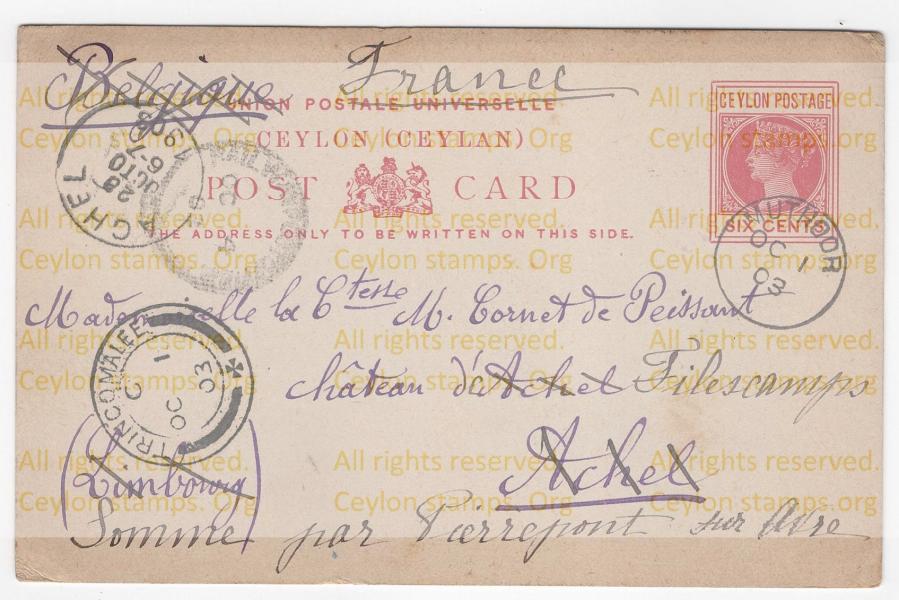 Belgique France
UNION POSTALE UNIVERSELLE
CEYLON (CEYLAN)
POST CARD
THE ADDRESS ONLY TO BE WRITTEN ON THIS SIDE.
CEYLON POSTAGE
SIX CENTS
ACHEL
28
OCTO
6-7
1903
OC 4
MUTHOOR
OC 1
03
Mademoiselle la Ctesse M. Cornet de Peissant
château d'Achel Filescamps
Achel
(Limbourg)
Somme par Pierrepont sur Avre
TRINCOMALEE
C
OC 1
03
All rights reserved.
Ceylon stamps. Org
All rights reserved.
Ceylon stamps. Org
All rights reserved.
Ceylon stamps. Org
All rights reserved.
Ceylon stamps. Org
All rights reserved.
Ceylon stamps. Org
All rights reserved.
Ceylon stamps. Org
All rights reserved.
Ceylon stamps. Org
All rights reserved.
Ceylon stamps. Org
All rights reserved.
Ceylon stamps. Org
All rights reserved.
Ceylon stamps. Org
All rights reserved.
Ceylon stamps. Org
All rights reserved.
Ceylon stamps. org